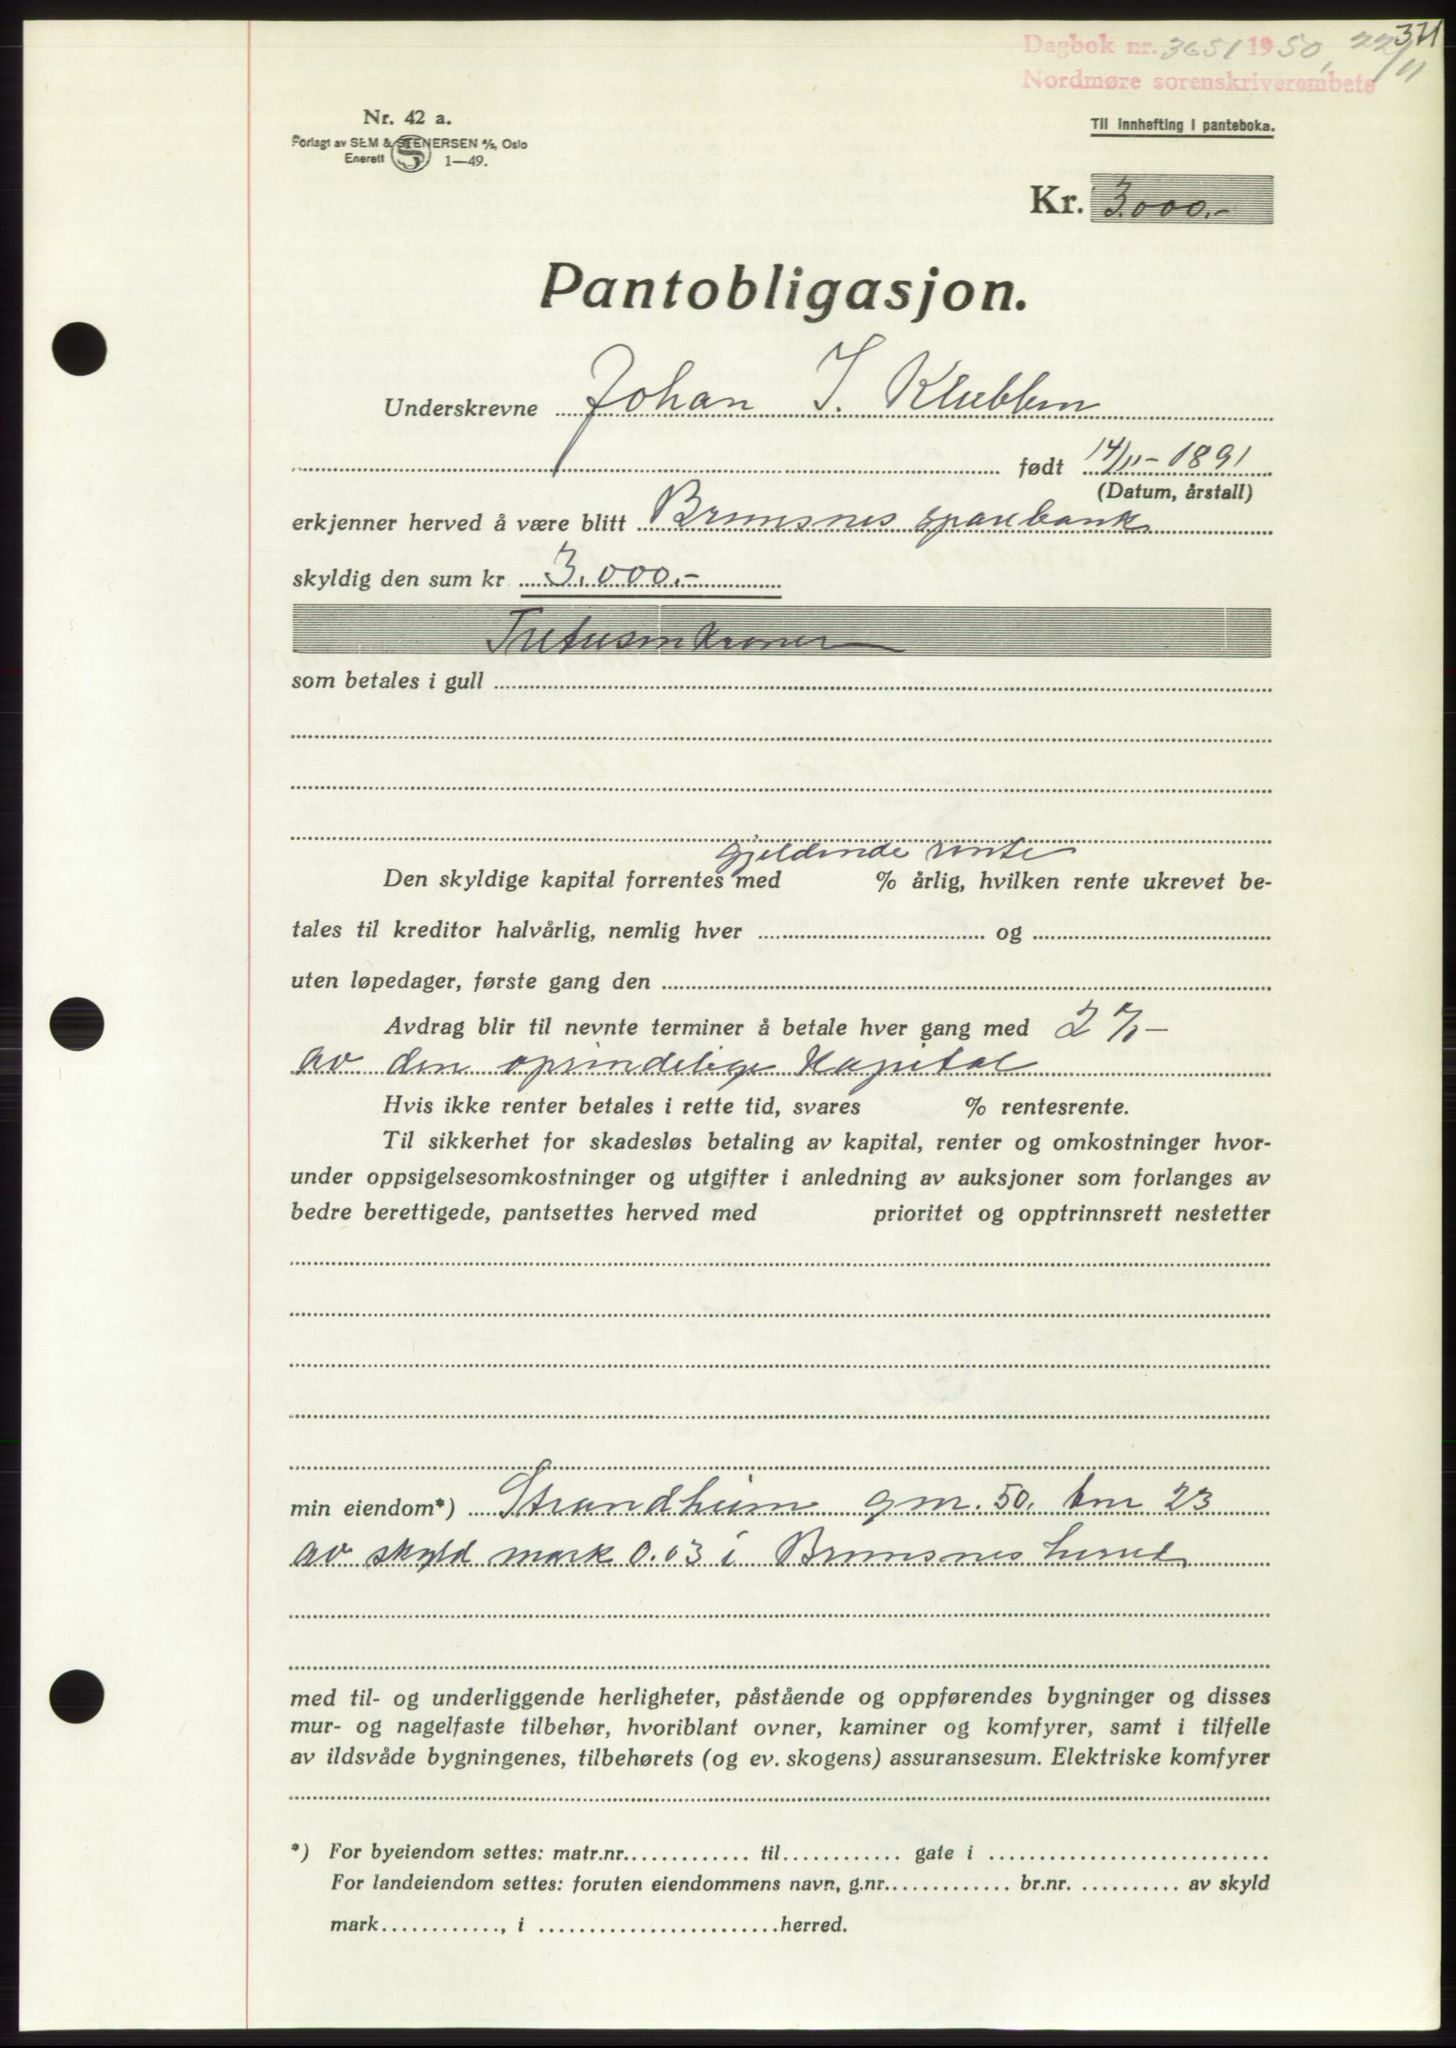 371
Dagbok nr. 3651 1950, 22/11
Nordmøre sorenskriverembete
Nr. 42 a.
Forlagt av SEM & STENERSEN A/S, Oslo
Enerett S 1—49.
Til innhefting i panteboka.
Kr. 3.000.-
Pantobligasjon.
Underskrevne Johan I. Klubben
født 14/11-1891
(Datum, årstall)
erkjenner herved å være blitt Bremsnes sparebank
skyldig den sum kr 3.000.-
Tretusen kroner
som betales i gull
gjeldende rente
Den skyldige kapital forrentes med % årlig, hvilken rente ukrevet be-
tales til kreditor halvårlig, nemlig hver og
uten løpedager, første gang den
Avdrag blir til nevnte terminer å betale hver gang med 2 %-
av den oprindelige Kapital
Hvis ikke renter betales i rette tid, svares % rentesrente.
Til sikkerhet for skadesløs betaling av kapital, renter og omkostninger hvor-
under oppsigelsesomkostninger og utgifter i anledning av auksjoner som forlanges av
bedre berettigede, pantsettes herved med prioritet og opptrinnsrett nestetter
min eiendom*) Strandheim gnr. 50. bnr 23
av skyld mark 0.03 i Bremsnes herred
med til- og underliggende herligheter, påstående og oppførendes bygninger og disses
mur- og nagelfaste tilbehør, hvoriblant ovner, kaminer og komfyrer, samt i tilfelle
av ildsvåde bygningenes, tilbehørets (og ev. skogens) assuransesum. Elektriske komfyrer
*) For byeiendom settes: matr.nr. til gate i
For landeiendom settes: foruten eiendommens navn, g.nr. br.nr. av skyld
mark , i herred.